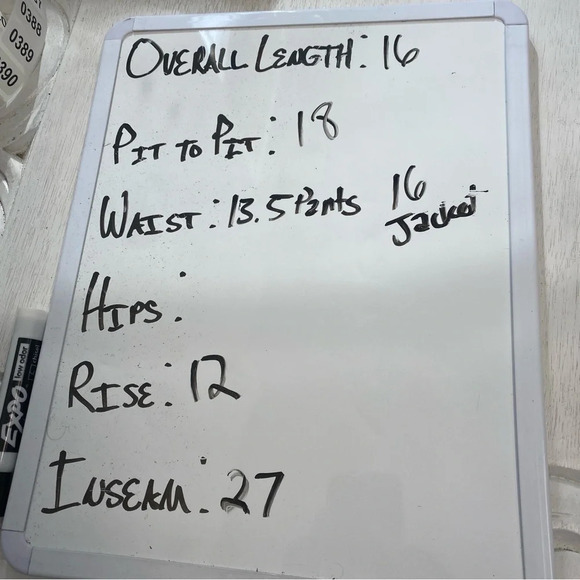 0388
0389
390
OVERALL LENGTH: 16
PIT TO PIT: 18
WAIST: 13.5 Pants 16 Jacket
HIPS:
RISE: 12
INSEAM: 27
EXPO low odor